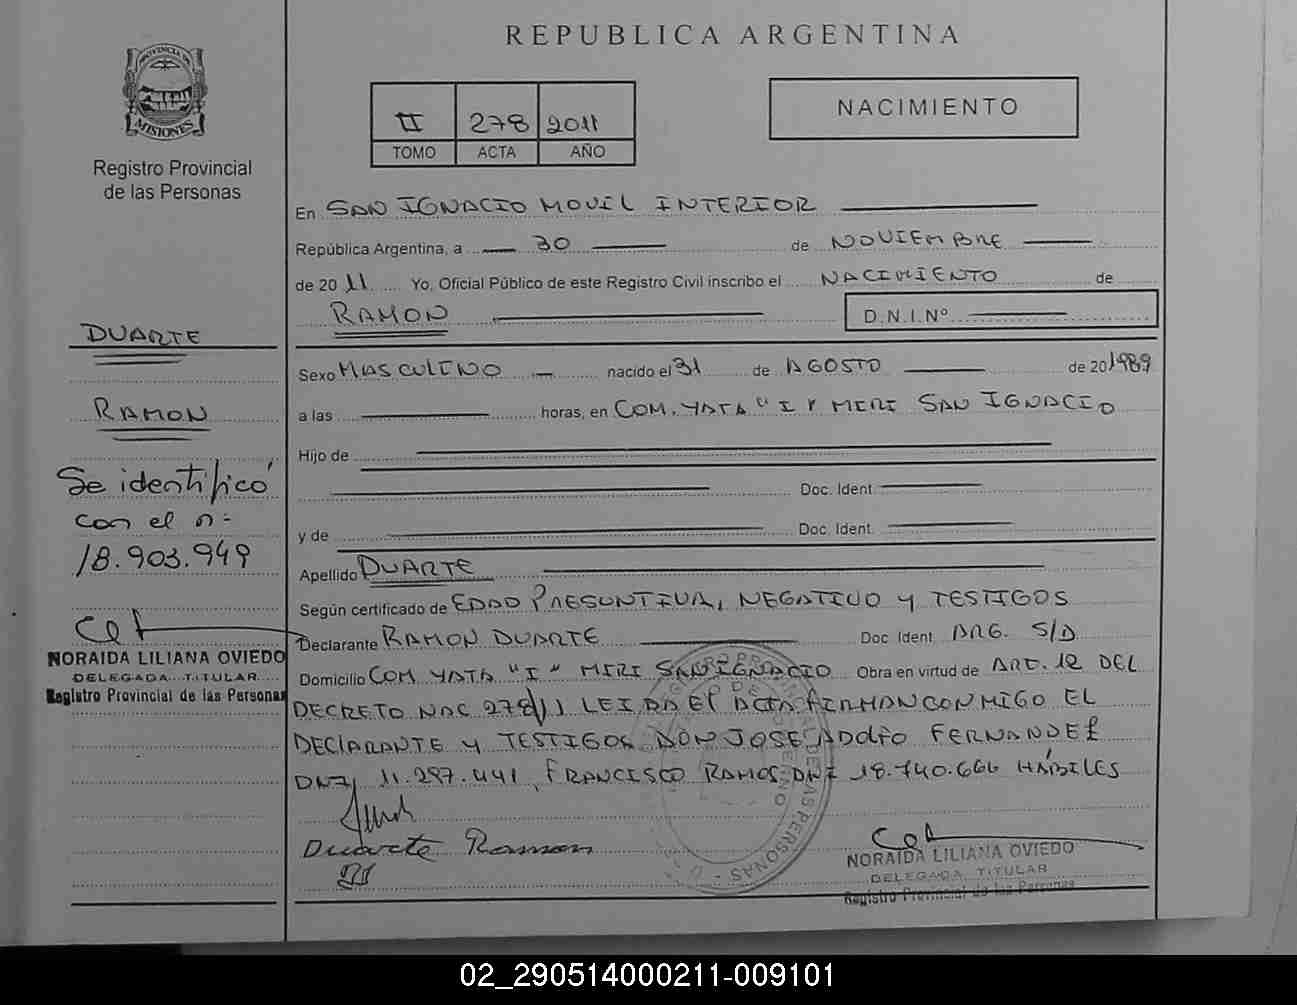 REPUBLICA ARGENTINA
PROVINCIA DE
MISIONES
Registro Provincial
de las Personas
II 278 2011
TOMO ACTA AÑO
NACIMIENTO
En SAN IGNACIO MOVIL INTERIOR
República Argentina, a 30 de NOVIEMBRE
de 2011 Yo, Oficial Público de este Registro Civil inscribo el NACIMIENTO de
RAMON D.N.I.Nº
DUARTE
RAMON
Se identificó
con el n-
18.903.949
NORAIDA LILIANA OVIEDO
DELEGADA TITULAR
Registro Provincial de las Personas
Sexo MASCULINO nacido el 31 de AGOSTO de 20 1989
a las horas, en COM. YATA "I" MIRI SAN IGNACIO
Hijo de
Doc. Ident.
y de Doc. Ident.
Apellido DUARTE
Según certificado de EDAD PRESUNTIVA, NEGATIVO Y TESTIGOS
Declarante RAMON DUARTE Doc. Ident. ARG. S/D
Domicilio COM YATA "I" MIRI SAN IGNACIO Obra en virtud de ART. 12 DEL
DECRETO NAC 278/11 LEIDA El ACTA FIRMAN CONMIGO EL
DEClARANTE Y TESTIGOS DON JOSE ADOLFO FERNANDEZ
DNI 11.297.441, FRANCISCO RAMOS DNI 18.740.666 HÁBILES
Duarte Ramon
NORAIDA LILIANA OVIEDO
DELEGADA TITULAR
Registro Provincial de las Personas
02_290514000211-009101